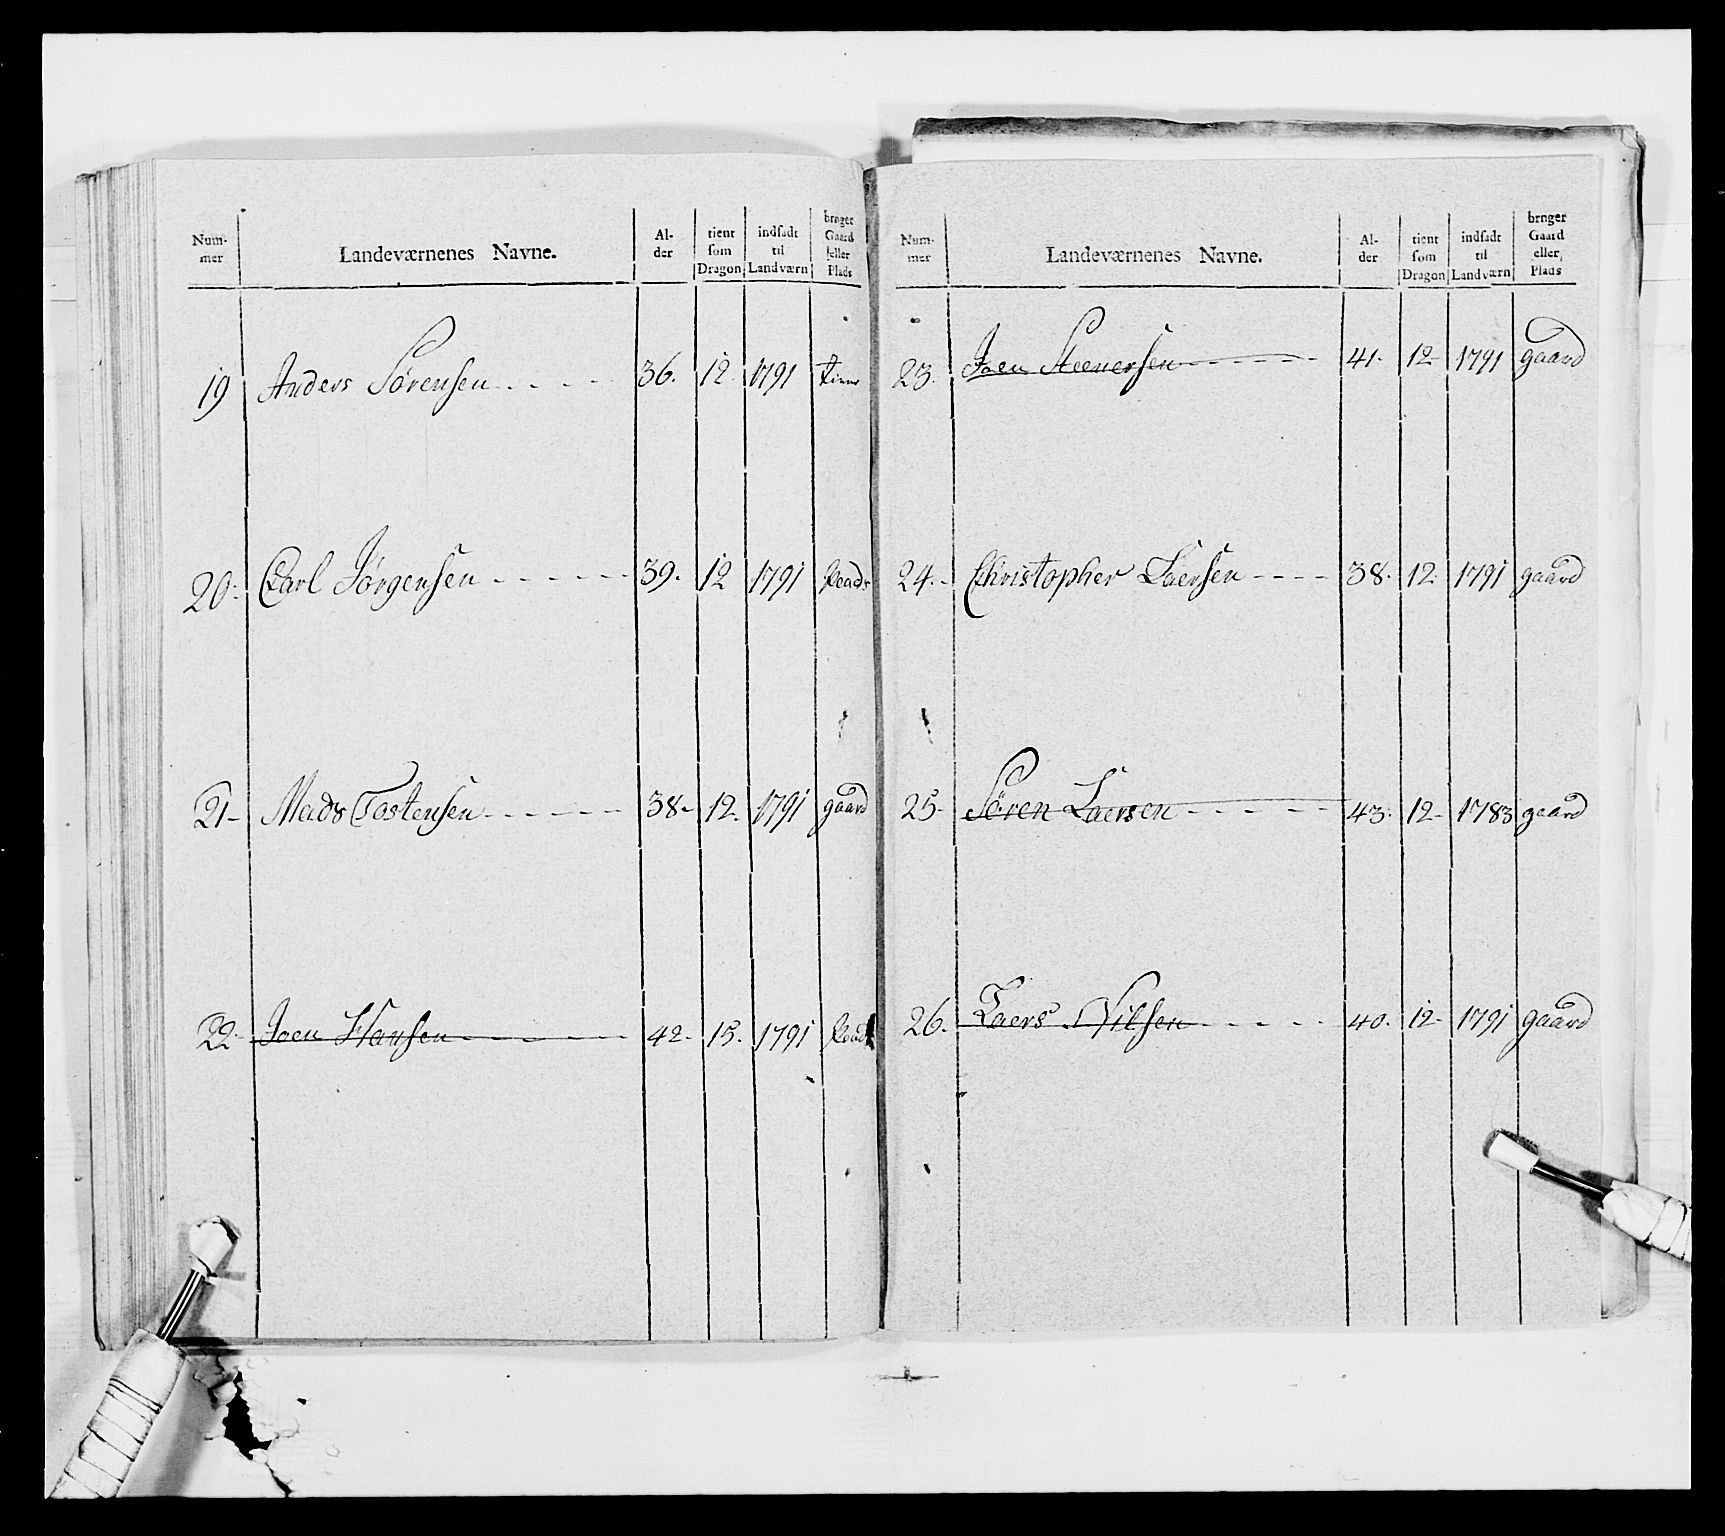 Num-
mer
Landeværnenes Navne.
Al-
der
tient
som
Dragon
indsadt
til
Landværn
bruger
Gaard
eller
Plads
19 Anders Sörensen 36. 12. 1791
20. Carl Jörgensen 39. 12 1791 Pladz
21 Mads Tostensen 38 12. 1791 gaard
22. Joen Hansen 42. 15. 1791
Num-
mer
Landeværnenes Navne.
Al-
der
tient
som
Dragon
indsadt
til
Landværn
bruger
Gaard
eller
Plads
23. Joen Steenersen 41. 12 1791 gaard
24. Christopher Laersen 38. 12. 1791 gaard
25 Sören Laersen 43. 12 1783 gaard
26. Laers Nilsen 40. 12 1791 gaard